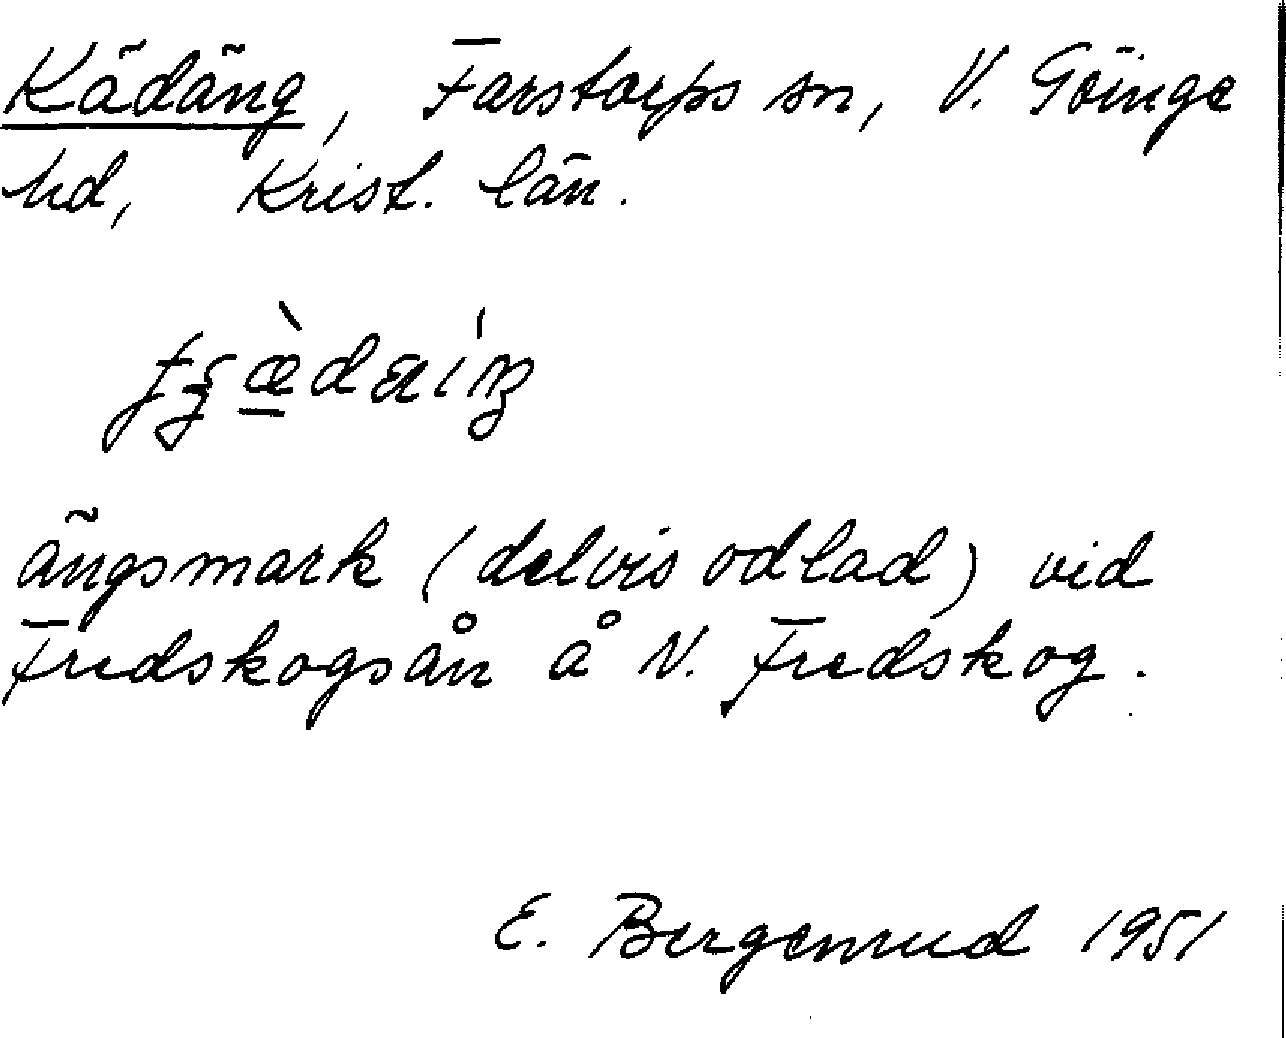 Kädäng, Farstorps sn, V. Göinge
hd, Krist. län.
ängsmark (delvis odlad) vid
Fredskogsån å N. Fredskog.
E. Bergenrud 1951